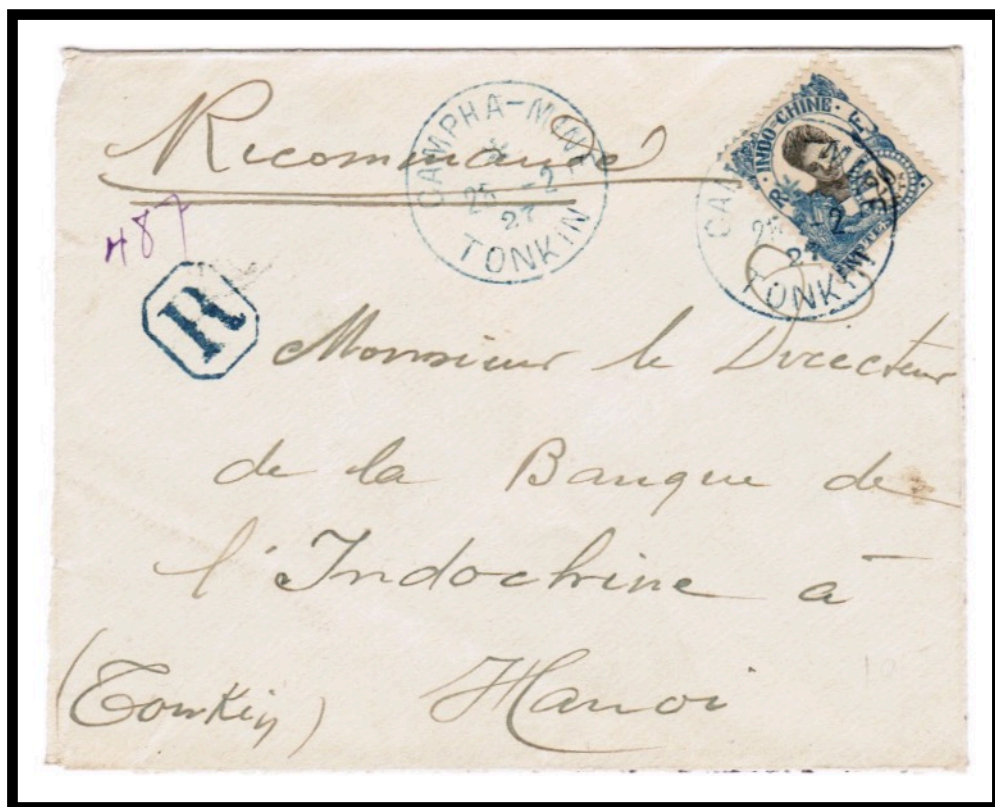 Recommandé
487
CAMPHA-MINE
25 -2
27
TONKIN
INDO-CHINE
R F
CAM MINE
25 -2
27
TONKIN
R
Monsieur le Directeur
de la Banque de
l'Indochine à
(Tonkin) Hanoi